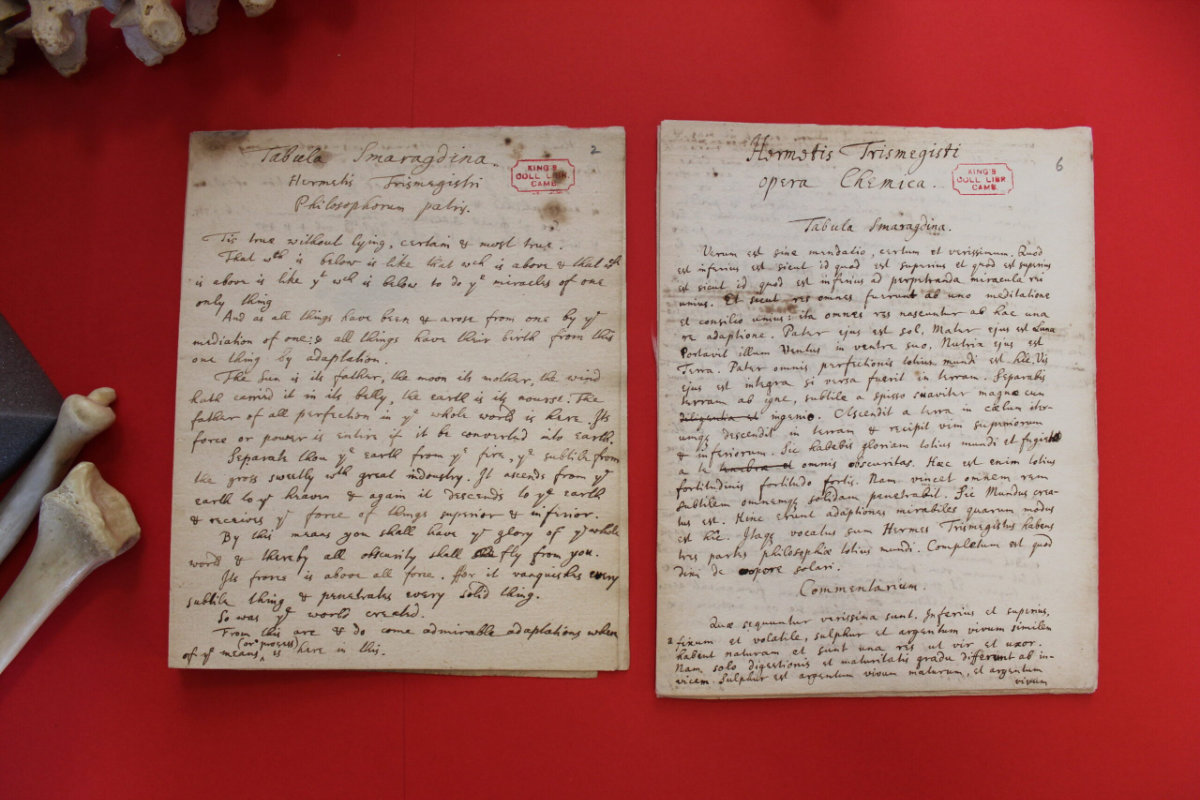 Tabula Smaragdina.
2
KING'S
COLL LIBR
CAMB.
Hermetis Trismegistri
Philosophorum patris.
Tis true without lying, certain & most true.
That wch is below is like that wch is above & that wch
is above is like yt wch is below to do ye miracles of one
only thing
And as all things have been & arose from one by ye
mediation of one: so all things have their birth from this
one thing by adaptation.
The Sun is its father, the moon its mother, the wind
hath carried it in its belly, the earth is its nourse. The
father of all perfection in ye whole world is here. Its
force or power is entire if it be converted into earth.
Separate thou ye earth from ye fire, ye subtile from
the gross sweetly wth great indoustry. It ascends from ye
earth to ye heaven & again it descends to ye earth
& receives ye force of things superior & inferior.
By this means you shall have ye glory of ye whole
world & thereby all obscurity shall fly from you.
Its force is above all force. ffor it vanquishes every
subtile thing & penetrates every solid thing.
So was ye world created.
From this are & do come admirable adaptations where
(or process)
of ye means is here in this.
Hermetis Trismegisti
6
opera Chemica.
KING'S
COLL LIBR
CAMB.
Tabula Smaragdina.
Verum est sine mendatio, certum et verissimum. Quod
est inferius est sicut id quod est superius et quod est superius
est sicut id quod est inferius ad perpetranda miracula rei
unius. Et sicut res omnes fuerunt ab uno meditatione
et consilio unius: ita omnes res nascuntur ab hac una
re adaptione. Pater ejus est sol, Mater ejus est Luna
Portavit illum Ventus in ventre suo, Nutrix ejus est
Terra. Pater omnis perfectionis totius mundi est hic. Vis
ejus est integra si versa fuerit in terram. Separabis
terram ab igne, subtile a spisso suaviter magna cum
diligentia et ingenio. Ascendit a terra in cœlum iter-
umq descendit in terram & recipit vim superiorum
& inferiorum. Sic habebis gloriam totius mundi et fugiet
a te tenebra et omnis obscuritas. Hæc est enim totius
fortitudinis fortitudo fortis. Nam vincet omnem rem
subtilem omnemq solidam penetrabit. Sic Mundus crea-
tus est. Hinc erunt adaptiones mirabiles quarum modus
est hic. Itaq vocatus sum Hermes Trismegistus habens
tres partes philosophiæ totius mundi. Completum est quod
dixi de opere solari.
Commentarium.
Quæ sequuntur verissima sunt. Inferius et superius,
fixum et volatile, sulphur et argentum vivum similem
habent naturam et sunt una res ut vir et uxor.
Nam solo digestionis et maturitatis gradu differunt ab in-
vicem. Sulphur est argentum vivum maturum, et argentum
vivum